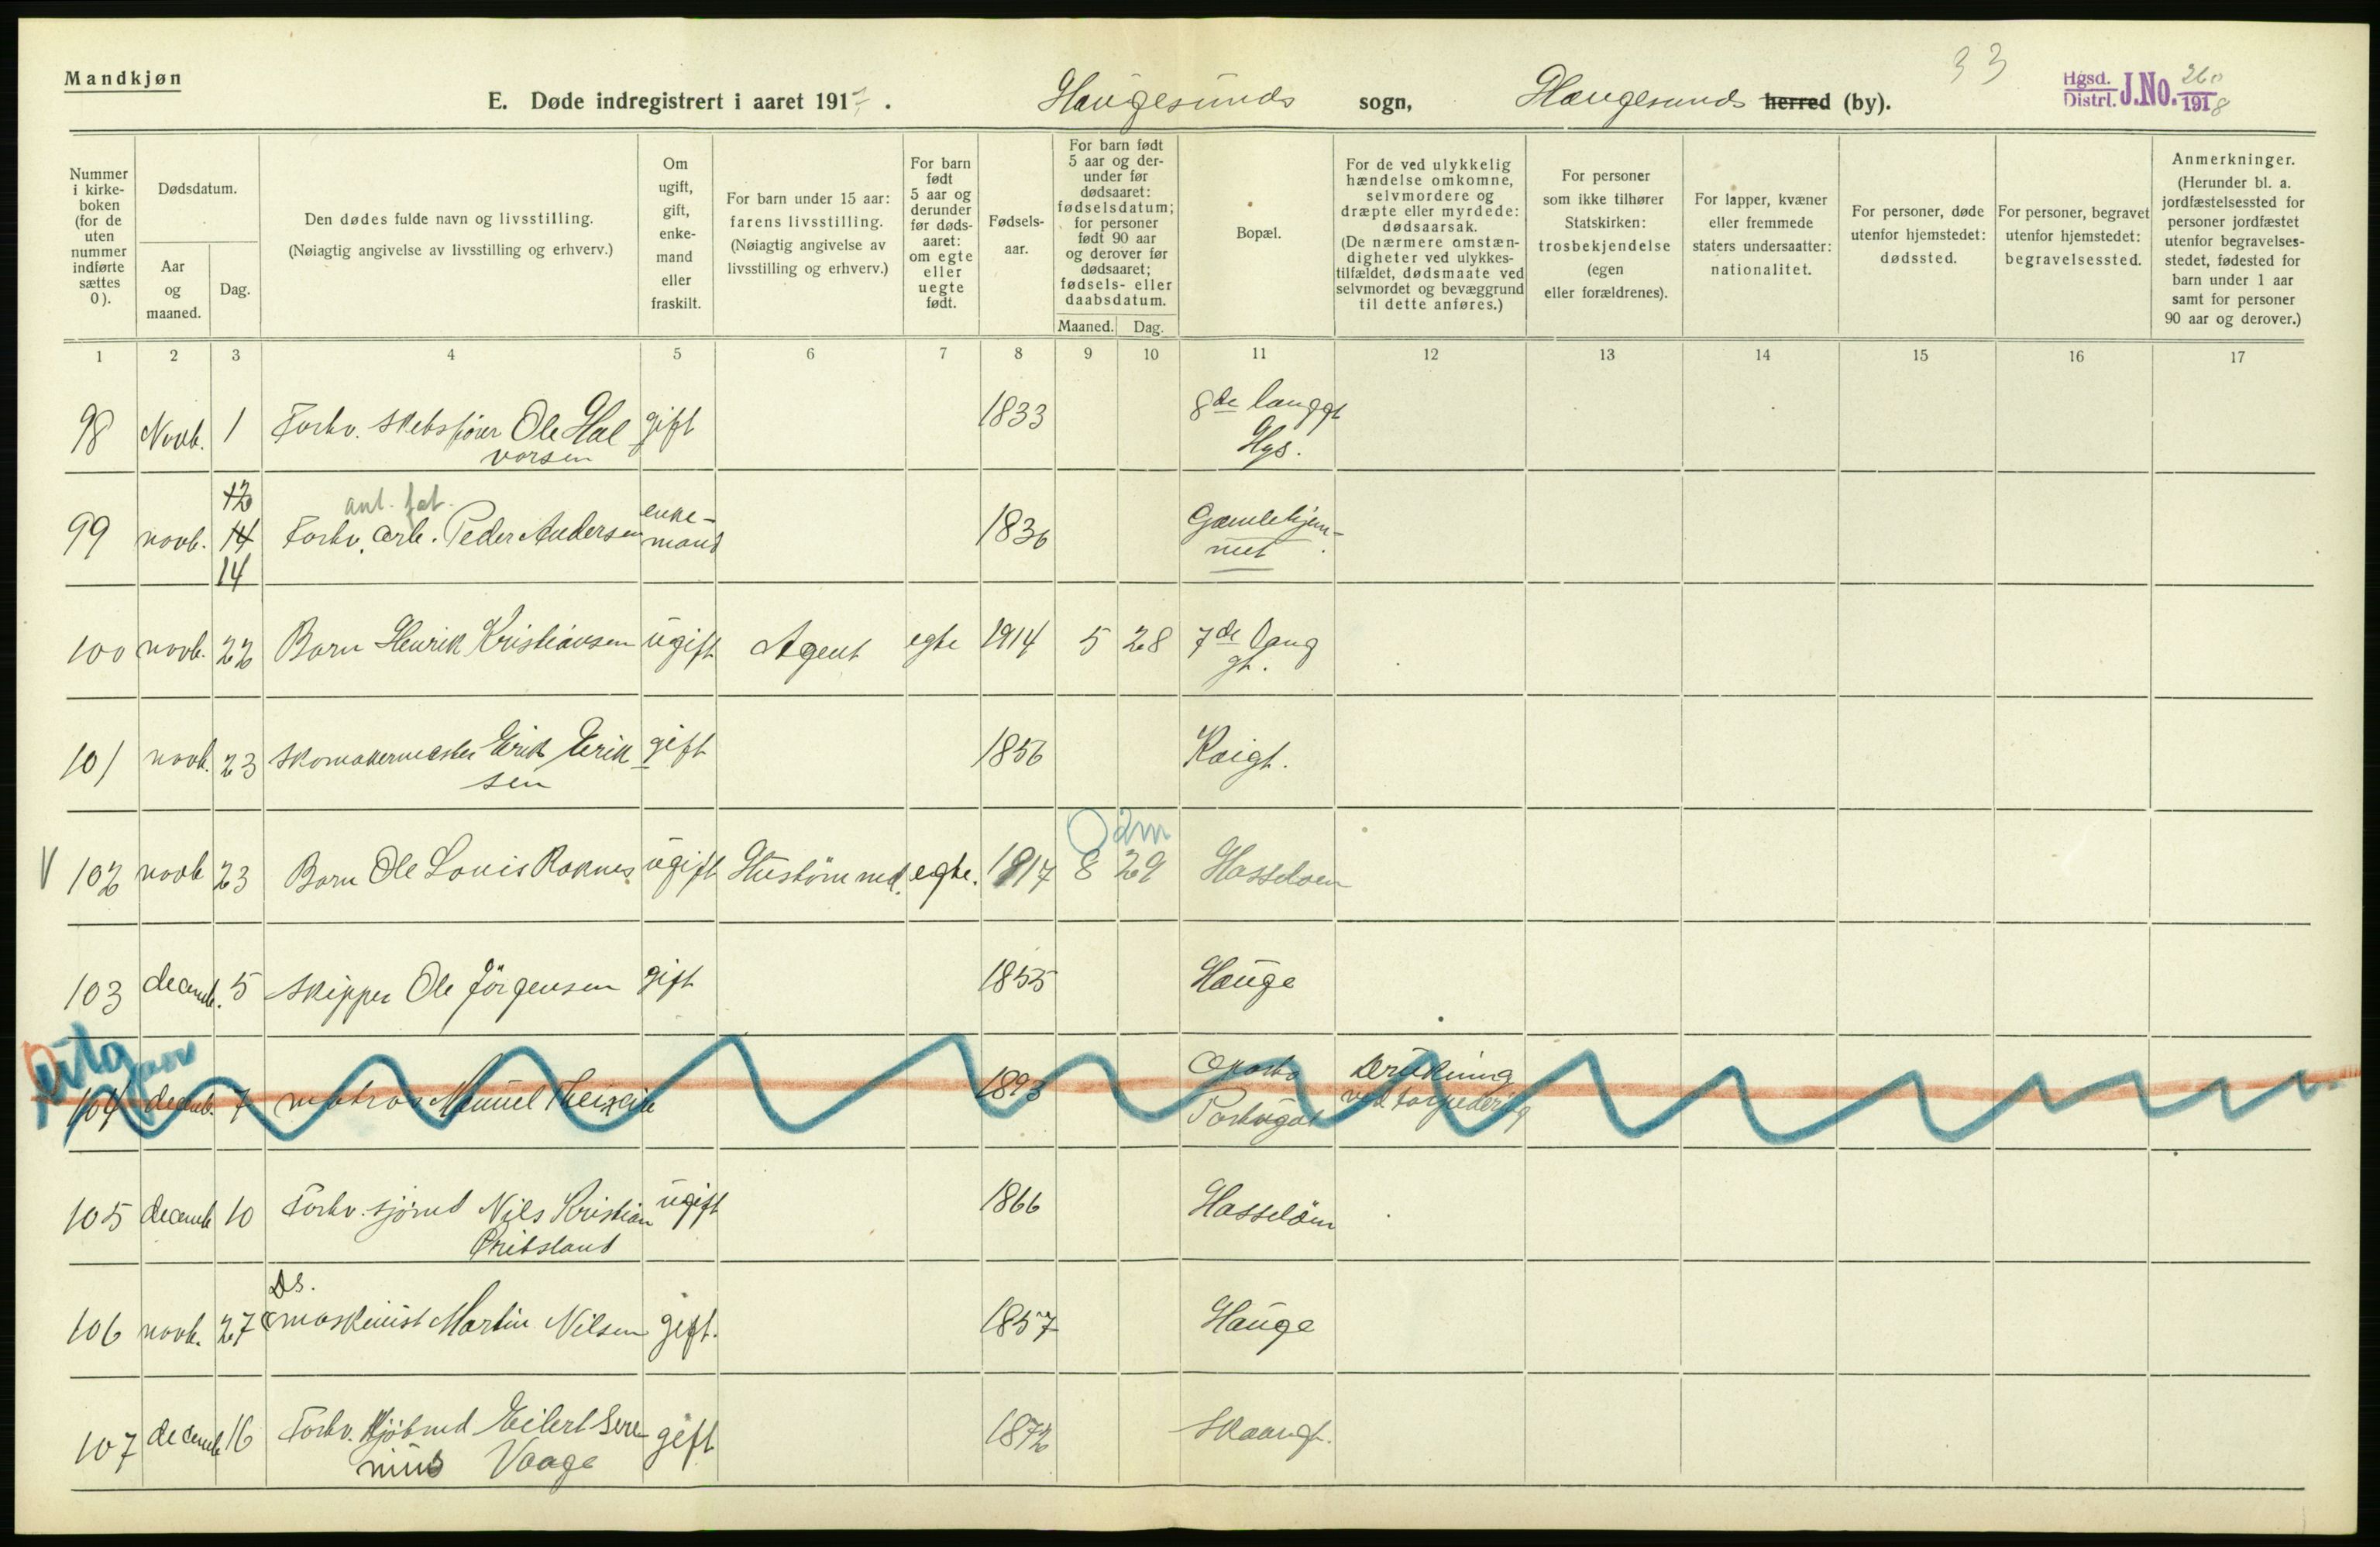 Mandkjøn
E. Døde indregistrert i aaret 1917.
Haugesunds sogn,
Haugesunds herred (by).
33
Hgsd. Distrl. J.No. 260 1918
Nummer i kirkeboken (for de uten nummer indførte sættes 0).
Dødsdatum.
Aar og maaned.
Dag.
Den dødes fulde navn og livsstilling.
(Nøiagtig angivelse av livsstilling og erhverv.)
Om ugift, gift, enkemand eller fraskilt.
For barn under 15 aar: farens livsstilling. (Nøiagtig angivelse av livsstilling og erhverv.)
For barn født 5 aar og derunder før dødsaaret: om egte eller uegte født.
Fødselsaar.
For barn født 5 aar og derunder før dødsaaret: fødselsdatum; for personer født 90 aar og derover før dødsaaret; fødsels- eller daabsdatum.
Maaned. Dag.
Bopæl.
For de ved ulykkelig hændelse omkomne, selvmordere og dræpte eller myrdede: dødsaarsak. (De nærmere omstændigheter ved ulykkestilfældet, dødsmaate ved selvmordet og bevæggrund til dette anføres.)
For personer som ikke tilhører Statskirken: trosbekjendelse (egen eller forældrenes).
For lapper, kvæner eller fremmede staters undersaatter: nationalitet.
For personer, døde utenfor hjemstedet: dødssted.
For personer, begravet utenfor hjemstedet: begravelsessted.
Anmerkninger. (Herunder bl. a. jordfæstelsessted for personer jordfæstet utenfor begravelsesstedet, fødested for barn under 1 aar samt for personer 90 aar og derover.)
1 2 3 4 5 6 7 8 9 10 11 12 13 14 15 16 17
98 Novb. 1 Forhv. skibsfører Ole Hal gift 1833 8de langgt
vorsen Hgs.
12
ant. fat.
99 novb. 14 Forhv. arb. Peder Andersen enkemand 1836 Gamlehjem-
14 met
100 novb. 22 Barn Henrik Kristiansen ugift Agent egte 1914 5 28 7de lang
gt.
101 novb. 23 skomakermester Erik Erik gift 1856 Kaigt.
sen
2m
V 102 novb 23 Barn Ole Louis Roknes ugift egte. 1917 8 29 Hasseloen
103 decemb. 5 skipper Ole Jörgensen gift 1855 Hauge
104 decemb. 7 matros Manuel 1893 Oporto Drukning
Portugal ved torpedering
105 decemb 10 Forhv. sjömd Nils Kristian ugift 1866 Hasselöen
106 novb. 27 Ds. maskinist Martin Nilsen gift. 1857 Hauge
107 decemb 16 Forhv. kjöbmd Eilert Sere- gift 1872 Skaaregt.
nius Vaage